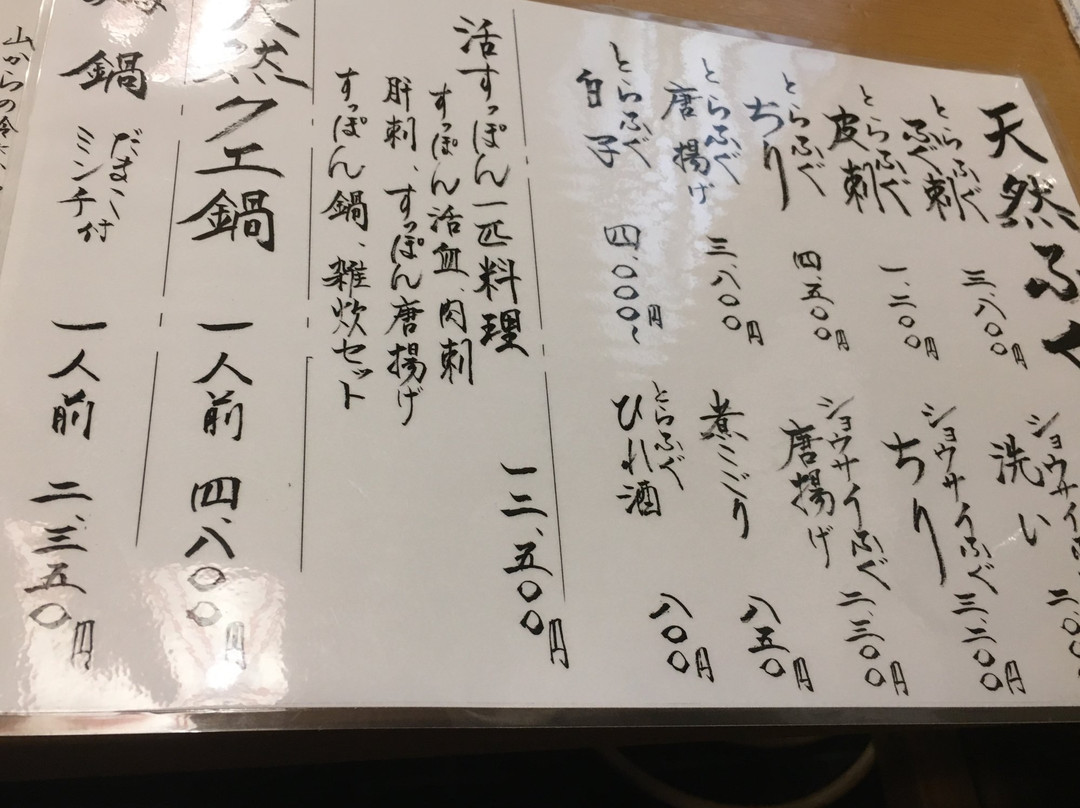 天然ふぐ
とらふぐ
ふぐ刺
三、八〇〇円
とらふぐ
皮刺
一、二〇〇円
とらふぐ
ちり
四、五〇〇円
とらふぐ
唐揚げ
三、八〇〇円
とらふぐ
白子
四、〇〇〇円〜
ショウサイふ
洗い
二、〇
ショウサイふぐ
ちり
三、二〇〇円
ショウサイふぐ
唐揚げ
二、三〇〇円
煮こごり
八五〇円
とらふぐ
ひれ酒
八〇〇円
活すっぽん一匹料理
一二、五〇〇円
すっぽん活血、肉刺
肝刺、すっぽん唐揚げ
すっぽん鍋、雑炊セット
天然クエ鍋 一人前 四、八〇〇円
鍋
だまこ
ミンチ付
一人前 二、三五〇円
山からの